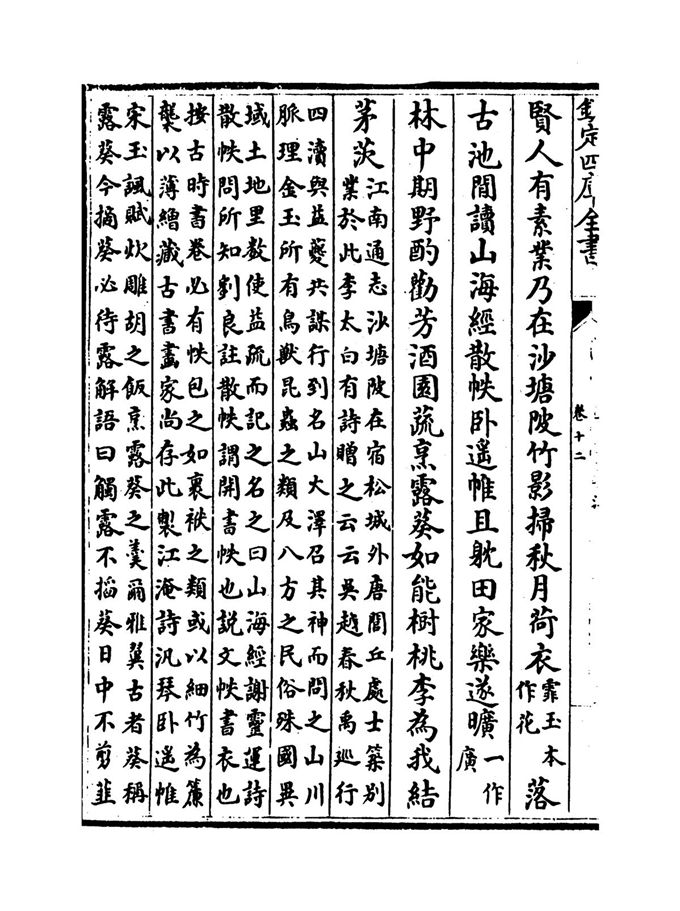 欽定四庫全書
卷十二
賢人有素業乃在沙塘陂竹影掃秋月荷衣霏玉本作花落
古池閒讀山海經散帙卧遥帷且躭田家樂遂曠一作廣
林中期野酌勸芳酒園蔬烹露葵如能樹桃李為我結
茅茨江南通志沙塘陂在宿松城外唐閭丘處士築别
業於此李太白有詩贈之云云吳越春秋禹廵行
四瀆與益夔共謀行到名山大澤召其神而問之山川
脈理金玉所有鳥獸昆蟲之類及八方之民俗殊國異
域土地里數使益疏而記之名之曰山海經謝靈運詩
散帙問所知劉良註散帙謂開書帙也説文帙書衣也
按古時書卷必有帙包之如裹袱之類或以細竹為簾
襲以薄繒藏古書畫家尚存此製江淹詩汎琴卧遥帷
宋玉諷賦炊雕胡之飯烹露葵之羹爾雅翼古者葵稱
露葵今摘葵必待露解語曰觸露不掐葵日中不剪韭